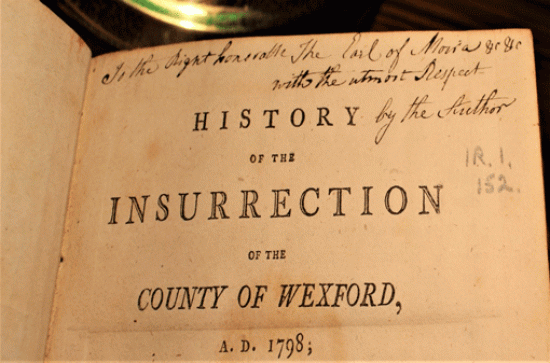 To the Right honorable The Earl of Moira &c &c
with the utmost Respect
by the Author
HISTORY
OF THE
INSURRECTION
OF THE
COUNTY OF WEXFORD,
A. D. 1798;
IR. I.
152.